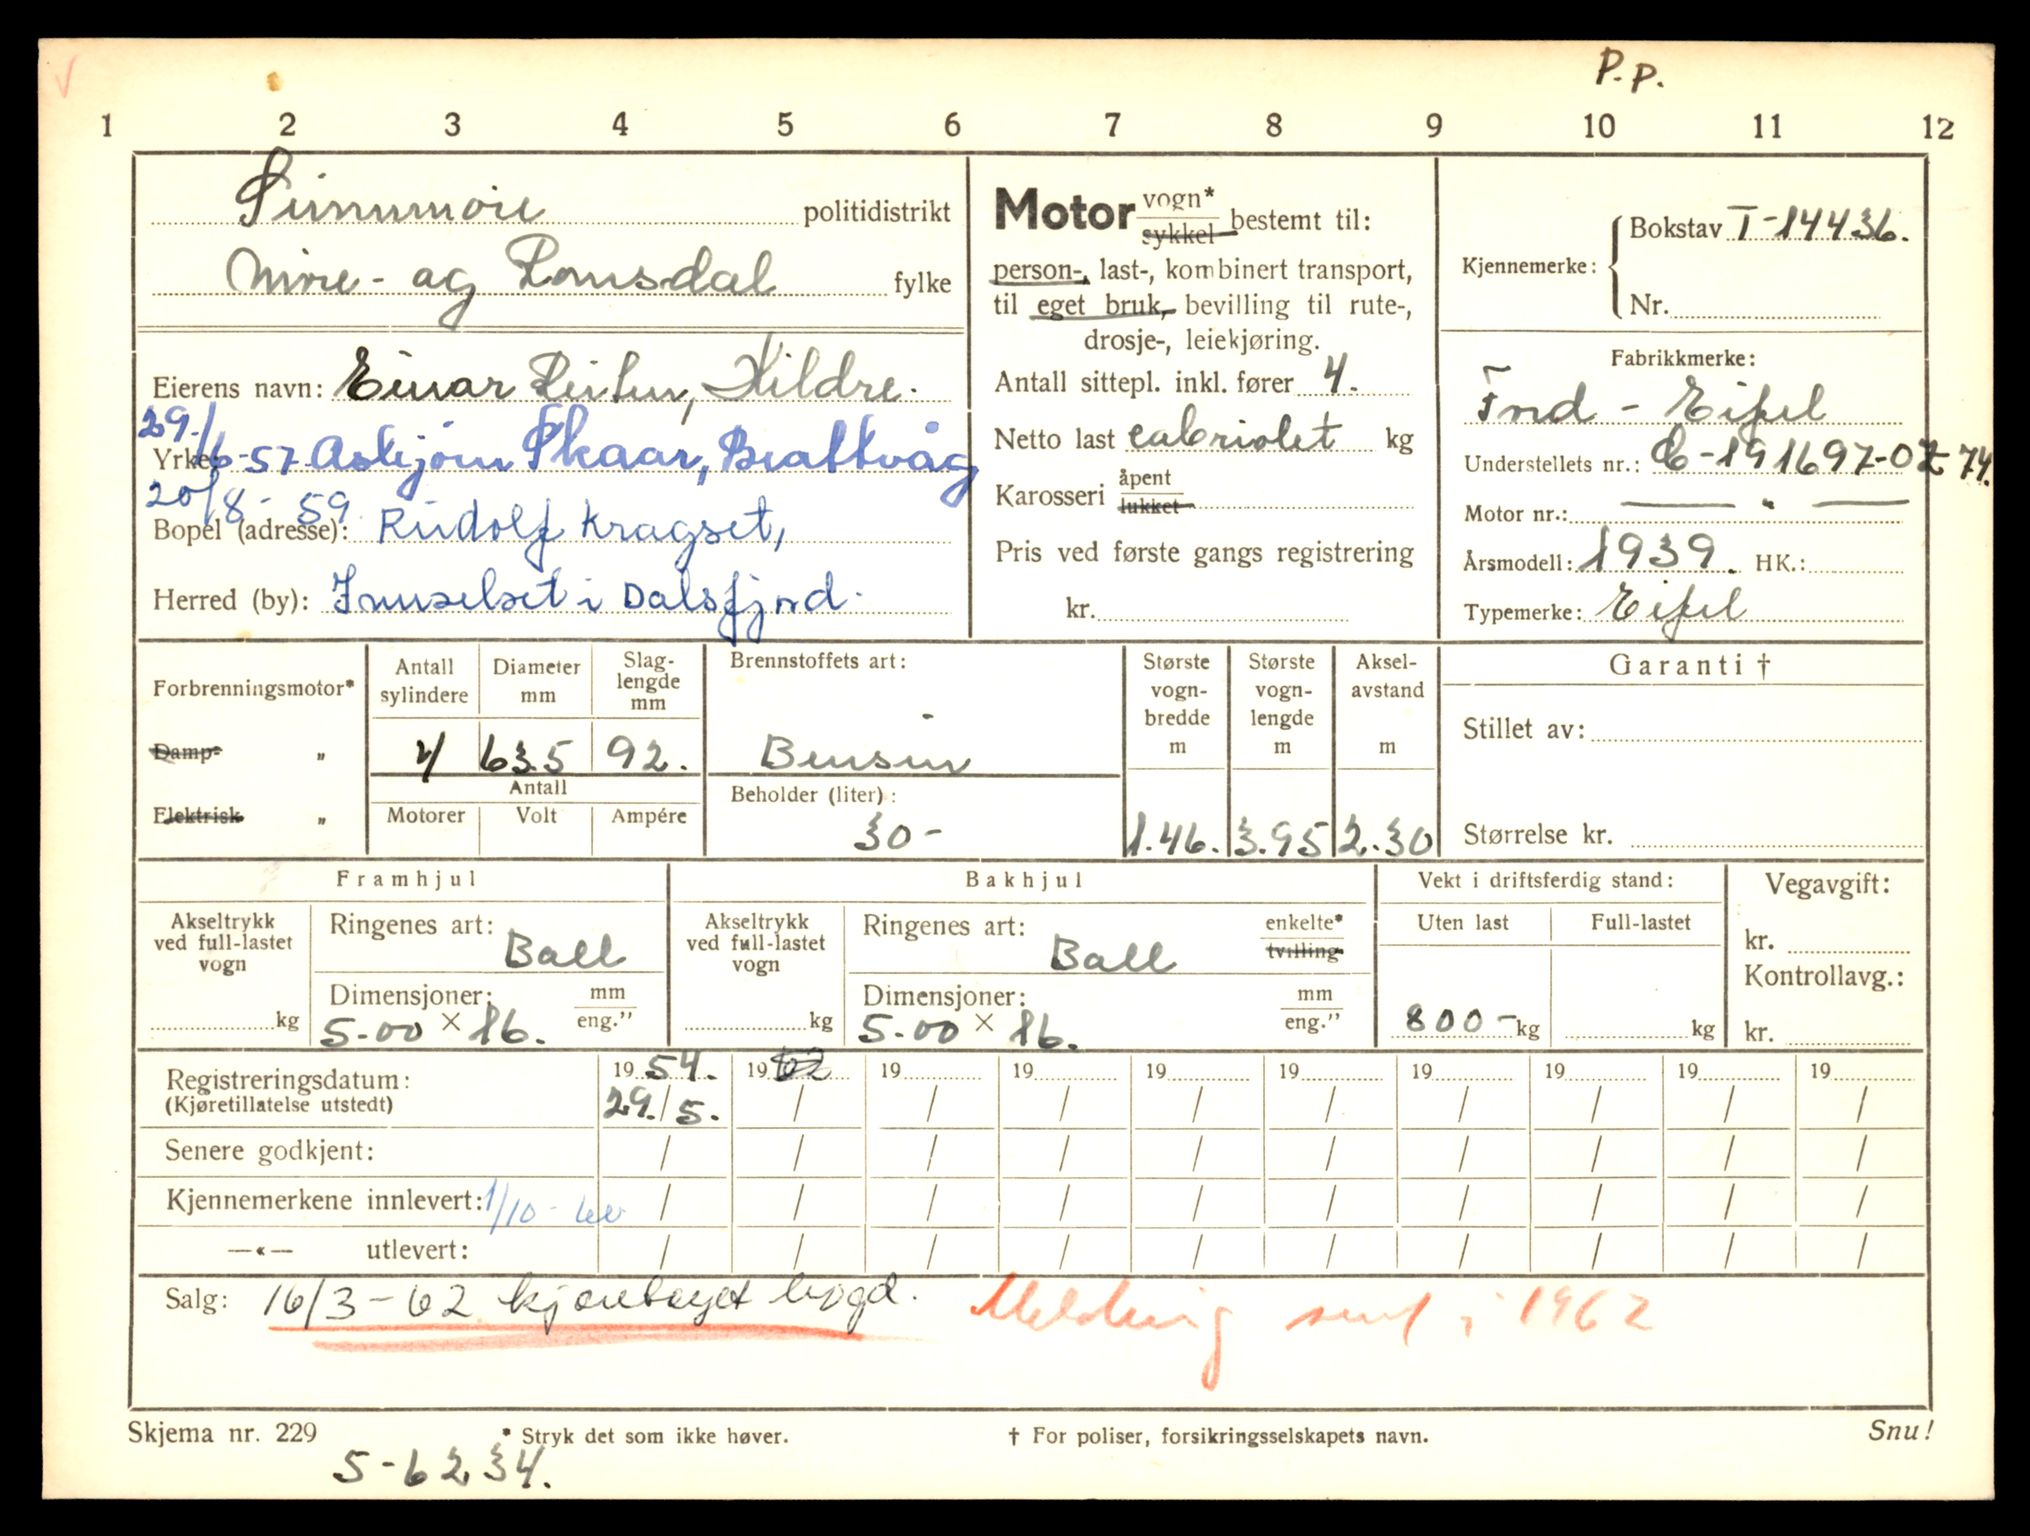 P.P.
1 2 3 4 5 6 7 8 9 10 11 12
Sunnmøre politidistrikt
Møre- og Romsdal fylke
Motor vogn* sykkel bestemt til:
person-, last-, kombinert transport,
til eget bruk, bevilling til rute-,
drosje-, leiekjøring.
Antall sittepl. inkl. fører 4.
Netto last cabriolet kg
Karosseri åpent lukket
Pris ved første gangs registrering
kr.
Kjennemerke: Bokstav T-14436.
Nr.
Fabrikkmerke:
Ford - Eifel
Understellets nr.: C-191697-0Z 74.
Motor nr.: — " —
Årsmodell: 1939. HK.:
Typemerke: Eifel
Eierens navn: Einar Hildre.
29/6-57 Asbjørn Skaar, Brattvåg
Yrke:
20/8-59
Bopel (adresse): Rudolf Kragset,
Herred (by): i Dalsfjord.
Forbrenningsmotor*
Damp- "
Elektrisk "
Antall sylindere 4
Diameter mm 63.5
Slag-lengde mm 92.
Antall
Motorer Volt Ampére
Brennstoffets art:
Bensin
Beholder (liter):
30-
Største vogn-bredde m 1.46.
Største vogn-lengde m 3.95
Aksel-avstand m 2.30
Garanti †
Stillet av:
Størrelse kr.
Framhjul
Akseltrykk ved full-lastet vogn kg
Ringenes art: Ball
Dimensjoner: mm eng."
5-00 × 16.
Bakhjul
Akseltrykk ved full-lastet vogn kg
Ringenes art: Ball enkelte* tvilling
Dimensjoner: mm eng."
5-00 × 16.
Vekt i driftsferdig stand:
Uten last Full-lastet
800- kg kg
Vegavgift:
kr.
Kontrollavg.:
kr.
Registreringsdatum: 19 54. 19 62 19 19 19 19 19 19 19 19
(Kjøretillatelse utstedt) 29./5. / / / / / / / / /
Senere godkjent: / / / / / / / / / /
Kjennemerkene innlevert: 1/10-60 / / / / / / / / /
—«— utlevert: / / / / / / / / / /
Salg: 16/3-62 kjøretøyet Meldning sent i 1962
Skjema nr. 229 * Stryk det som ikke høver. † For poliser, forsikringsselskapets navn. Snu!
5-6234.